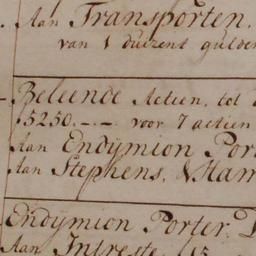 Aan Transporten.
van 1 duizent gulden
Beleende Actien, tot
15250.-.- voor 7 actien
Aan Endijmion Por
Aan Stephens, & Ham
Endijmion Porter.
Aan Intreste 15